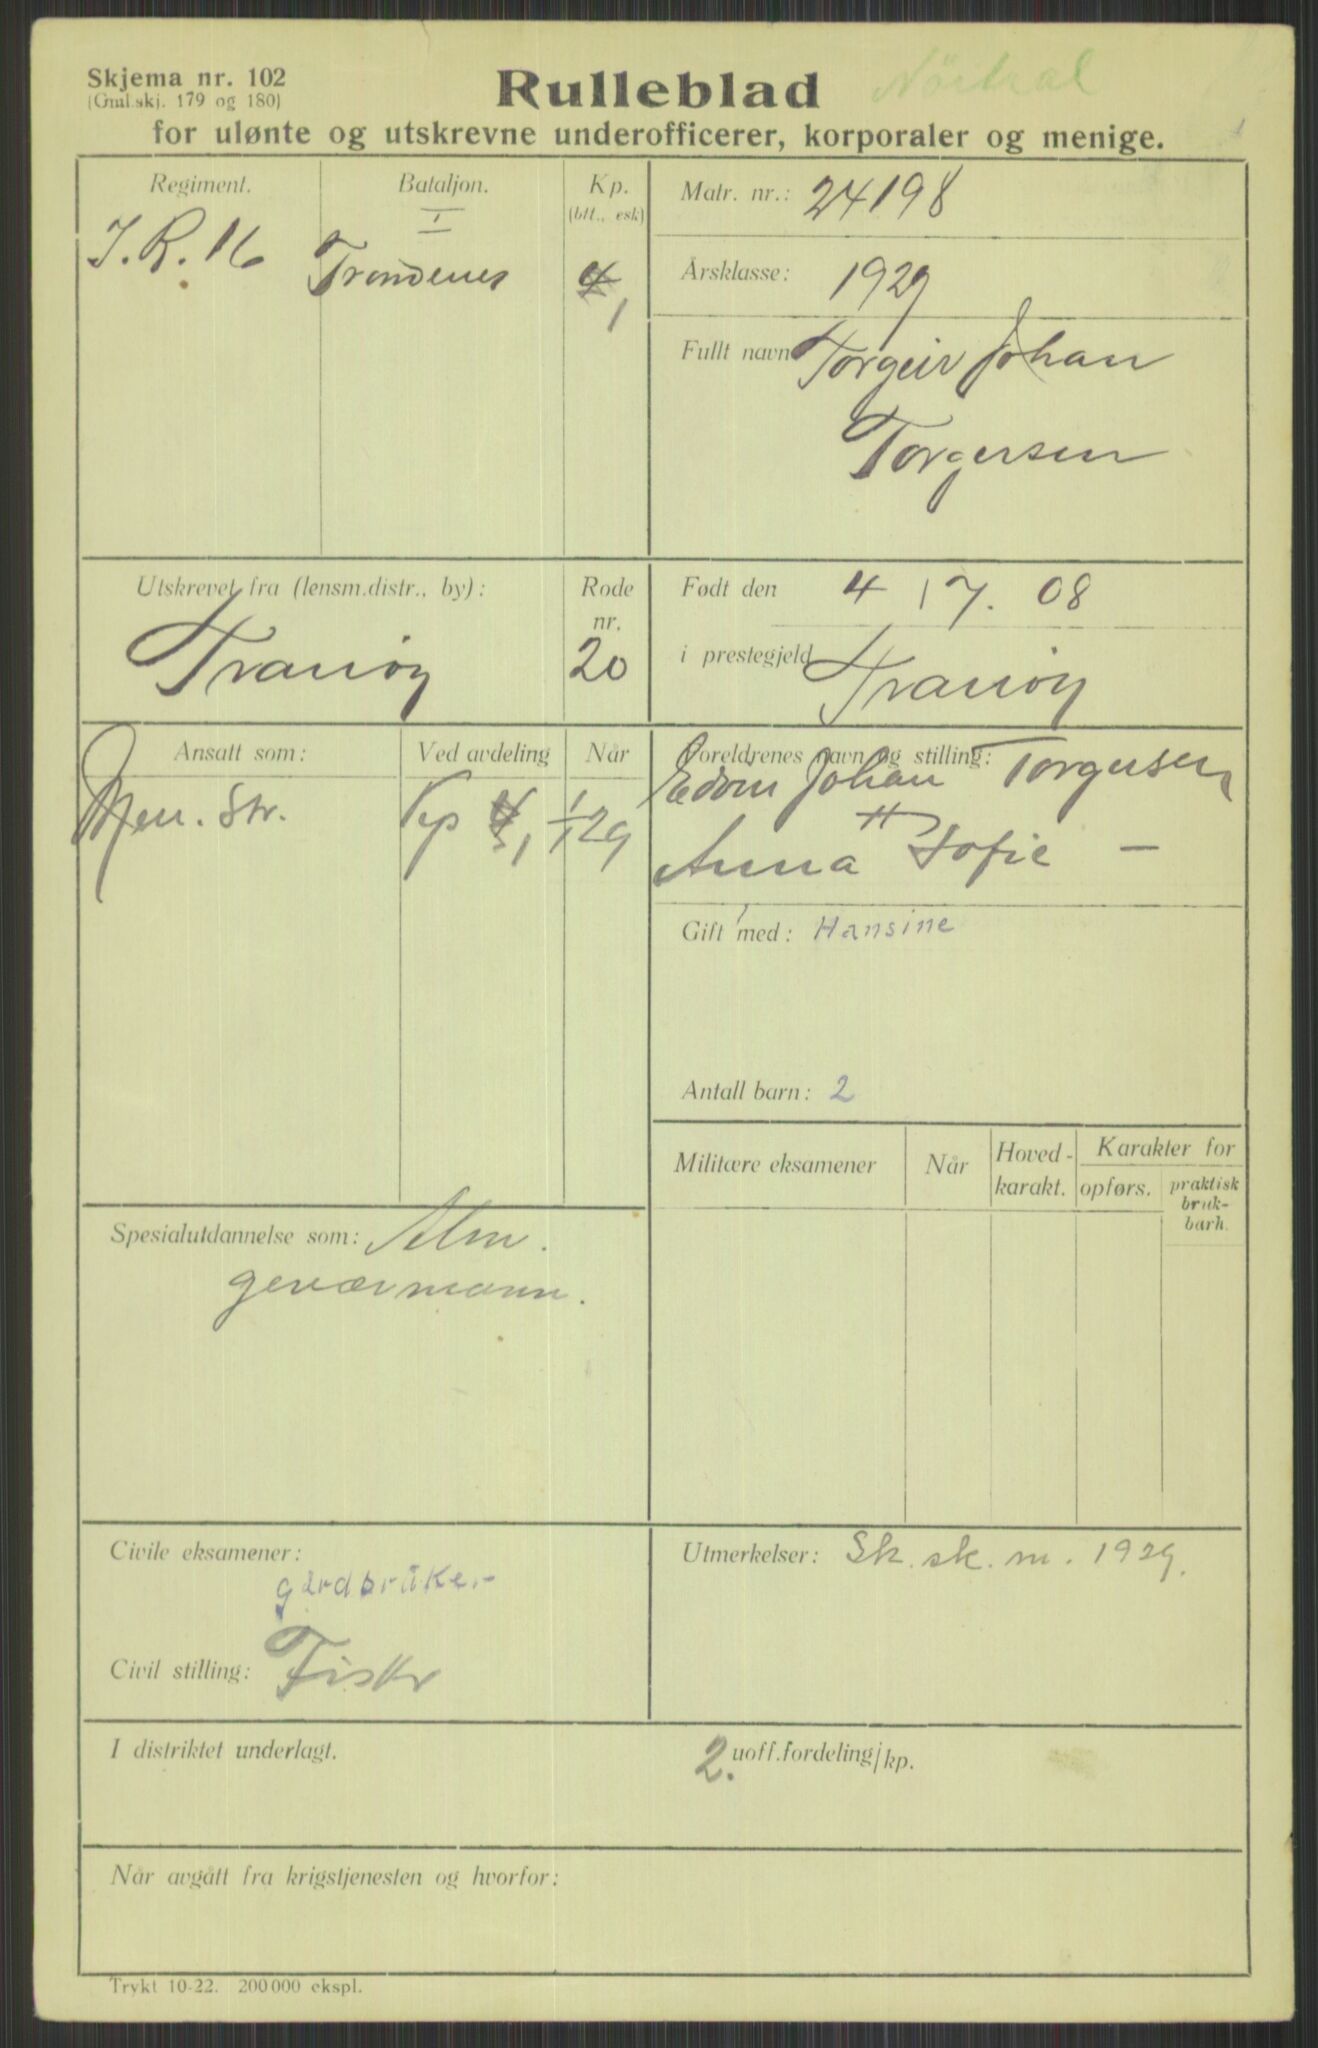 Skjema nr. 102
(Gml. skj. 179 og 180)
Rulleblad
for ulønte og utskrevne underofficerer, korporaler og menige.
Regiment.
Bataljon.
Kp.
(btt., esk)
I. R. 16
I
Trondenes
4
1
Matr. nr.: 24198
Årsklasse: 1929
Fullt navn Torgeir Johan
Torgersen
Utskrevet fra (lensm.distr., by):
Tranöy
Rode
nr.
20
Født den 4 / 7. 08
i prestegjeld Tranöy
Ansatt som:
Ved avdeling
Når
Men. Str.
Kp
1
1/1 29
Foreldrenes navn og stilling:
Edvin Johan Torgersen
Anna Sofie —
Gift med: Hansine
Antall barn: 2
Militære eksamener
Når
Hoved-
karakt.
Karakter for
opførs.
praktisk
bruk-
barh.
Spesialutdannelse som: Alm.
geværmann.
Civile eksamener:
gårdbruker
Civil stilling: Fiskr
Utmerkelser: Sk. sk. m. 1929.
I distriktet underlagt.
2. uoff.fordeling/kp.
Når avgått fra krigstjenesten og hvorfor:
Trykt 10-22. 200 000 ekspl.